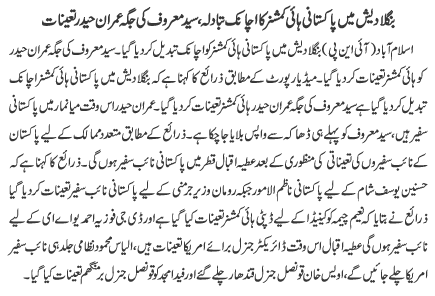 بنگلادیش میں پاکستانی ہائی کمشنر کا اچانک تبادلہ، سید معروف کی جگہ عمران حیدر تعینات
اسلام آباد (آئی این پی) بنگلادیش میں پاکستانی ہائی کمشنر کو اچانک تبدیل کر دیا گیا۔ سید معروف کی جگہ عمران حیدر
کو ہائی کمشنر تعینات کر دیا گیا۔ میڈیا رپورٹ کے مطابق ذرائع کا کہنا ہے کہ بنگلادیش میں پاکستانی ہائی کمشنر اچانک
تبدیل کر دیا گیا ہے سید معروف کی جگہ عمران حیدر ہائی کمشنر تعینات کر دیا گیا۔ عمران حیدر اس وقت میانمار میں پاکستانی
سفیر ہیں، سید معروف کو پہلے ہی ڈھاکہ سے واپس بلایا جا چکا ہے۔ ذرائع کے مطابق متعدد ممالک کے لیے پاکستان
کے نائب سفیروں کی تعیناتی کی منظوری کے بعد عطیہ اقبال قطر میں پاکستانی نائب سفیر ہوں گی۔ ذرائع کا کہنا ہے کہ
حسنین یوسف شام کے لیے پاکستانی ناظم الامور جبکہ رومان وزیر جرمنی کے لیے پاکستانی نائب سفیر تعینات کر دیا گیا
ذرائع نے بتایا کہ نعیم چیمہ کو کینیڈا کے لیے ڈپٹی ہائی کمشنر تعینات کیا گیا ہے اور ڈی جی فوزیہ احمد یو اے ای کے لیے
سفیر ہوں گی عطیہ اقبال اس وقت ڈائریکٹر جنرل برائے امریکا تعینات ہیں، الیاس محمود نظامی جلد ہی نائب سفیر
امریکا چلے جائیں گے، اویس خان قونصل جنرل قندھار چلے گئے اور فہد امجد کو قونصل جنرل برمنگھم تعینات کیا گیا۔